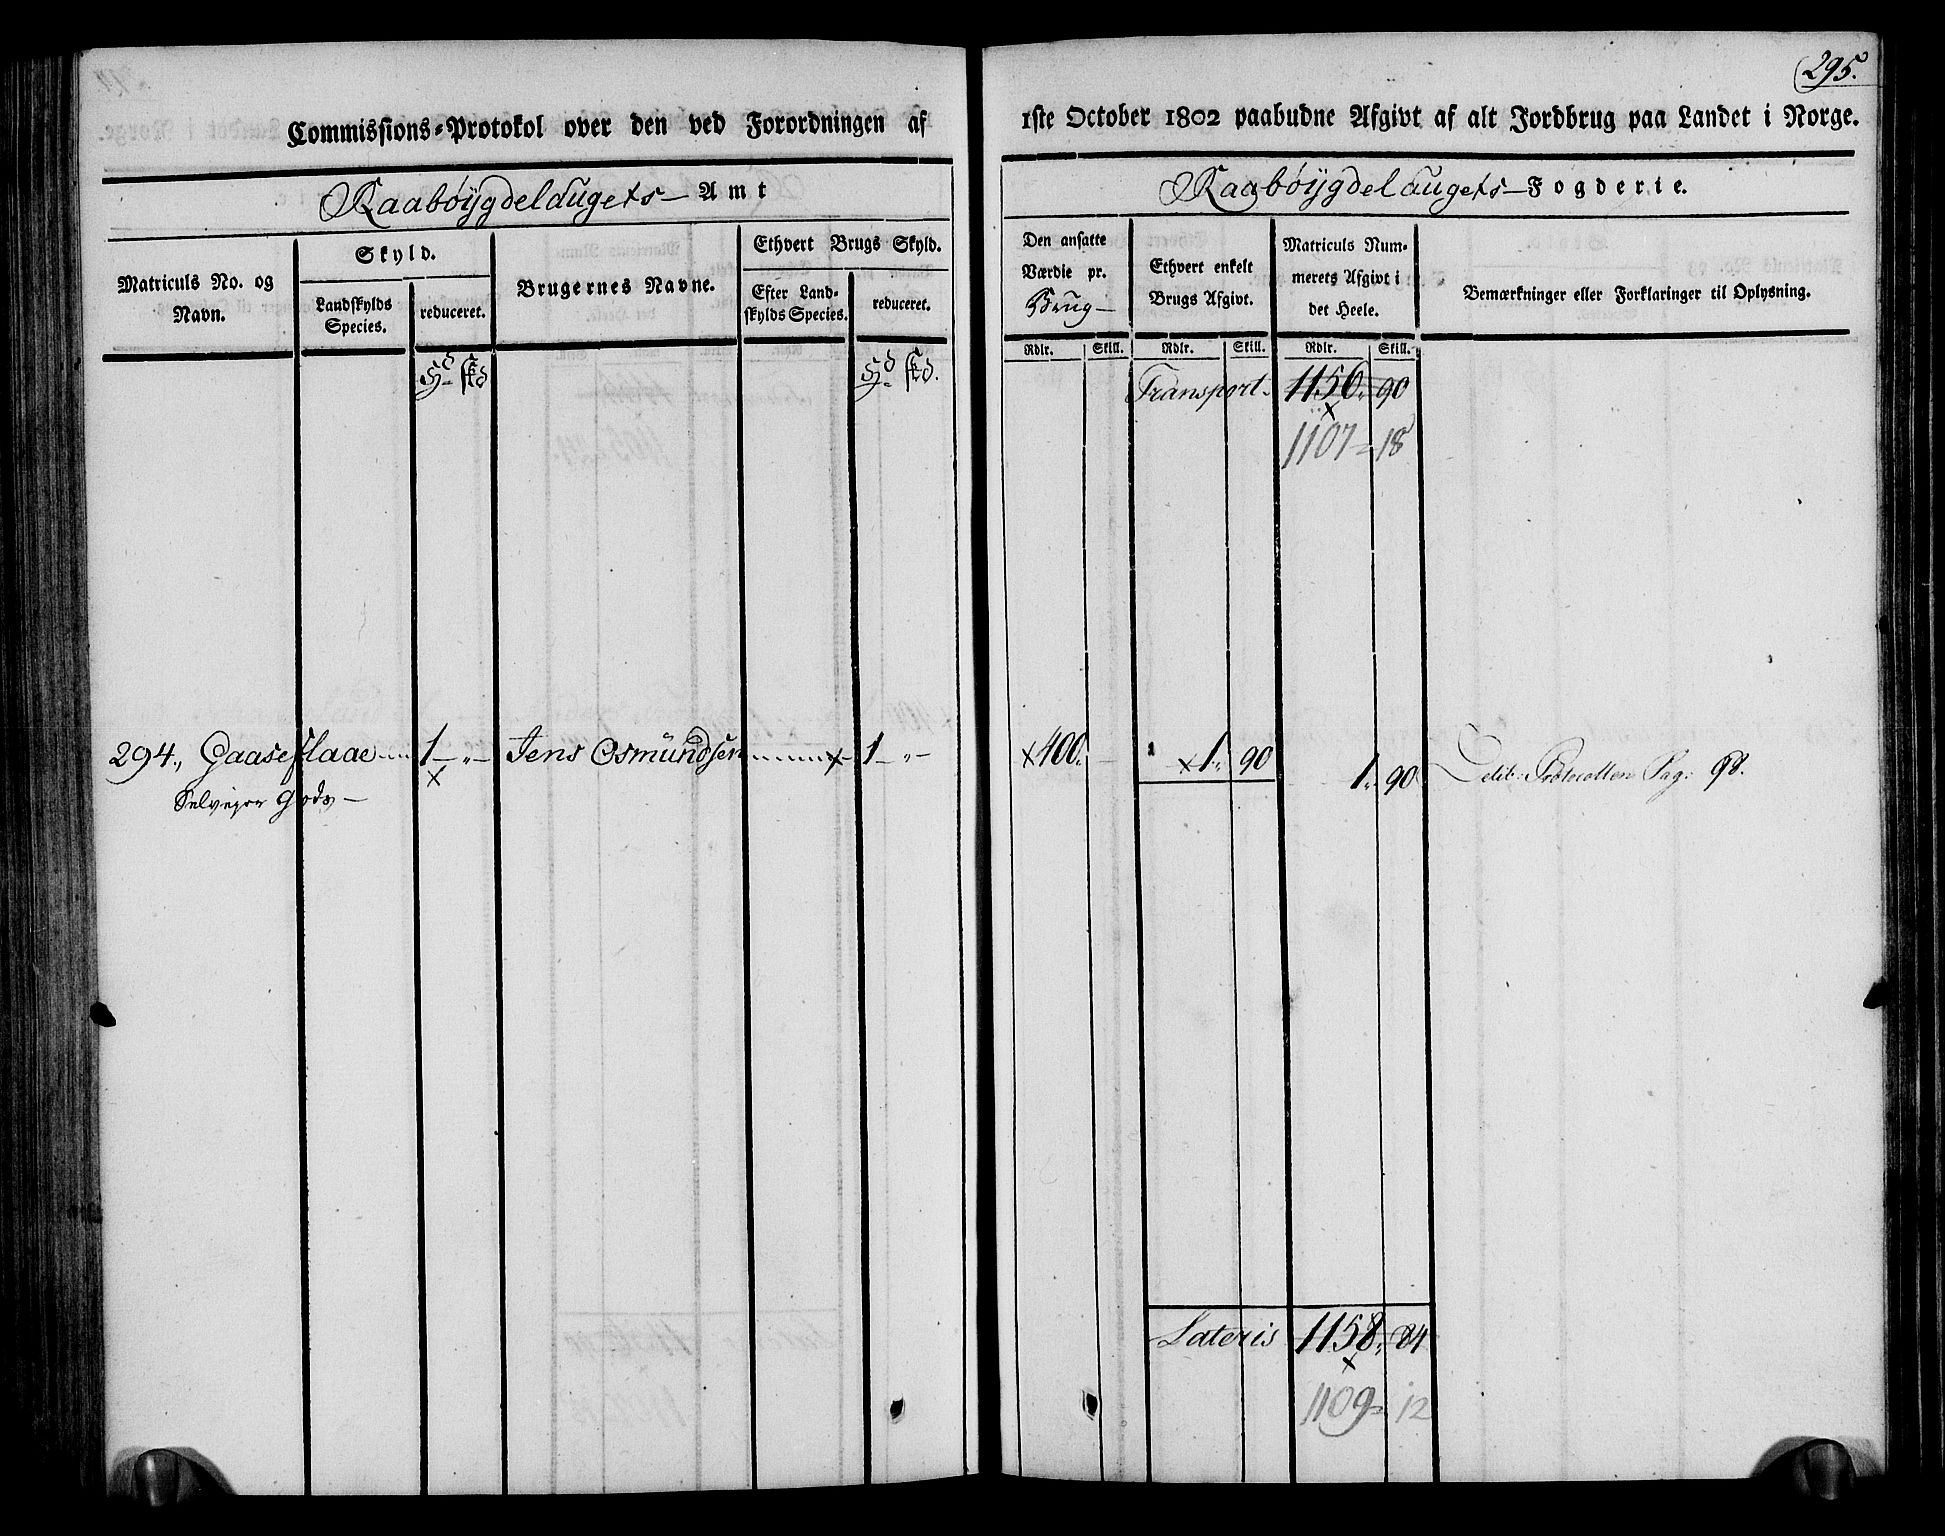 295.
Commissions-Protokol over den ved Forordningen af 1ste October 1802 paabudne Afgivt af alt Jordbrug paa Landet i Norge.
Raabøygdelaugets Amt
Raabøygdelaugets Fogderie.
Matriculs No. og Navn.
Skyld.
Landskylds Species.
reduceret.
Brugernes Navne.
Ethvert Brugs Skyld.
Efter Landskylds Species.
reduceret.
Den ansatte Værdie pr. Brug
Ethvert enkelt Brugs Afgivt.
Matriculs Nummerets Afgivt i det Heele.
Bemærkninger eller Forklaringer til Oplysning.
Rdlr. Skill. Rdlr. Skill. Rdlr. Skill.
Transport. 1156. 90
1107 = 18
294., Gaaseflaae 1 „ Jens Osmündsen x 1 „ x 400. x 1. 90 1. 90 Delib: Protocollen Pag: 98.
Selveyer Gods
Lateris 1158. 84
1109 = 12